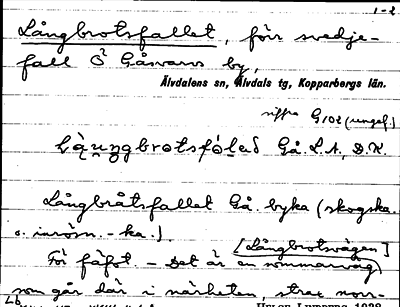 1-2
Långbrotsfallet, förr svedje-
fall Ö Gåsvarvs by,
Älvdalens sn, Älvdals tg, Kopparbergs län.
siffra G102 (ungef.)
Gå. L.A., D.K.
Långbråtsfallet Gå. byka (skogska.
o. inrösn. -ka.).
[Långbrotsvägen]
För fäfot. - Det är en sommarväg
som går där i närheten, strax norr-